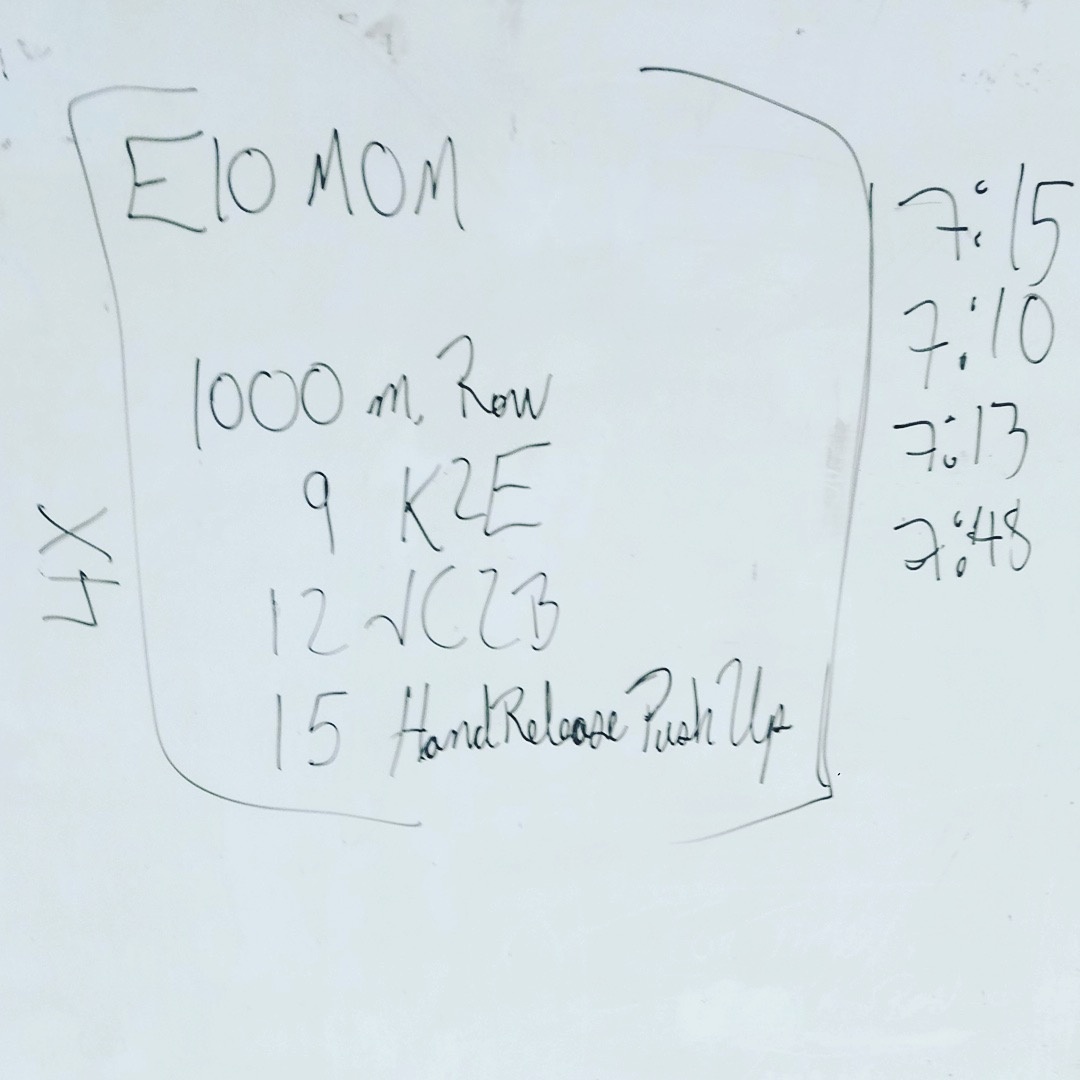 E10 MOM
1000 m. Row
9 K2E
12 √C2B
15 Hand Release Push Up
4X
7:15
7:10
7:13
7:48